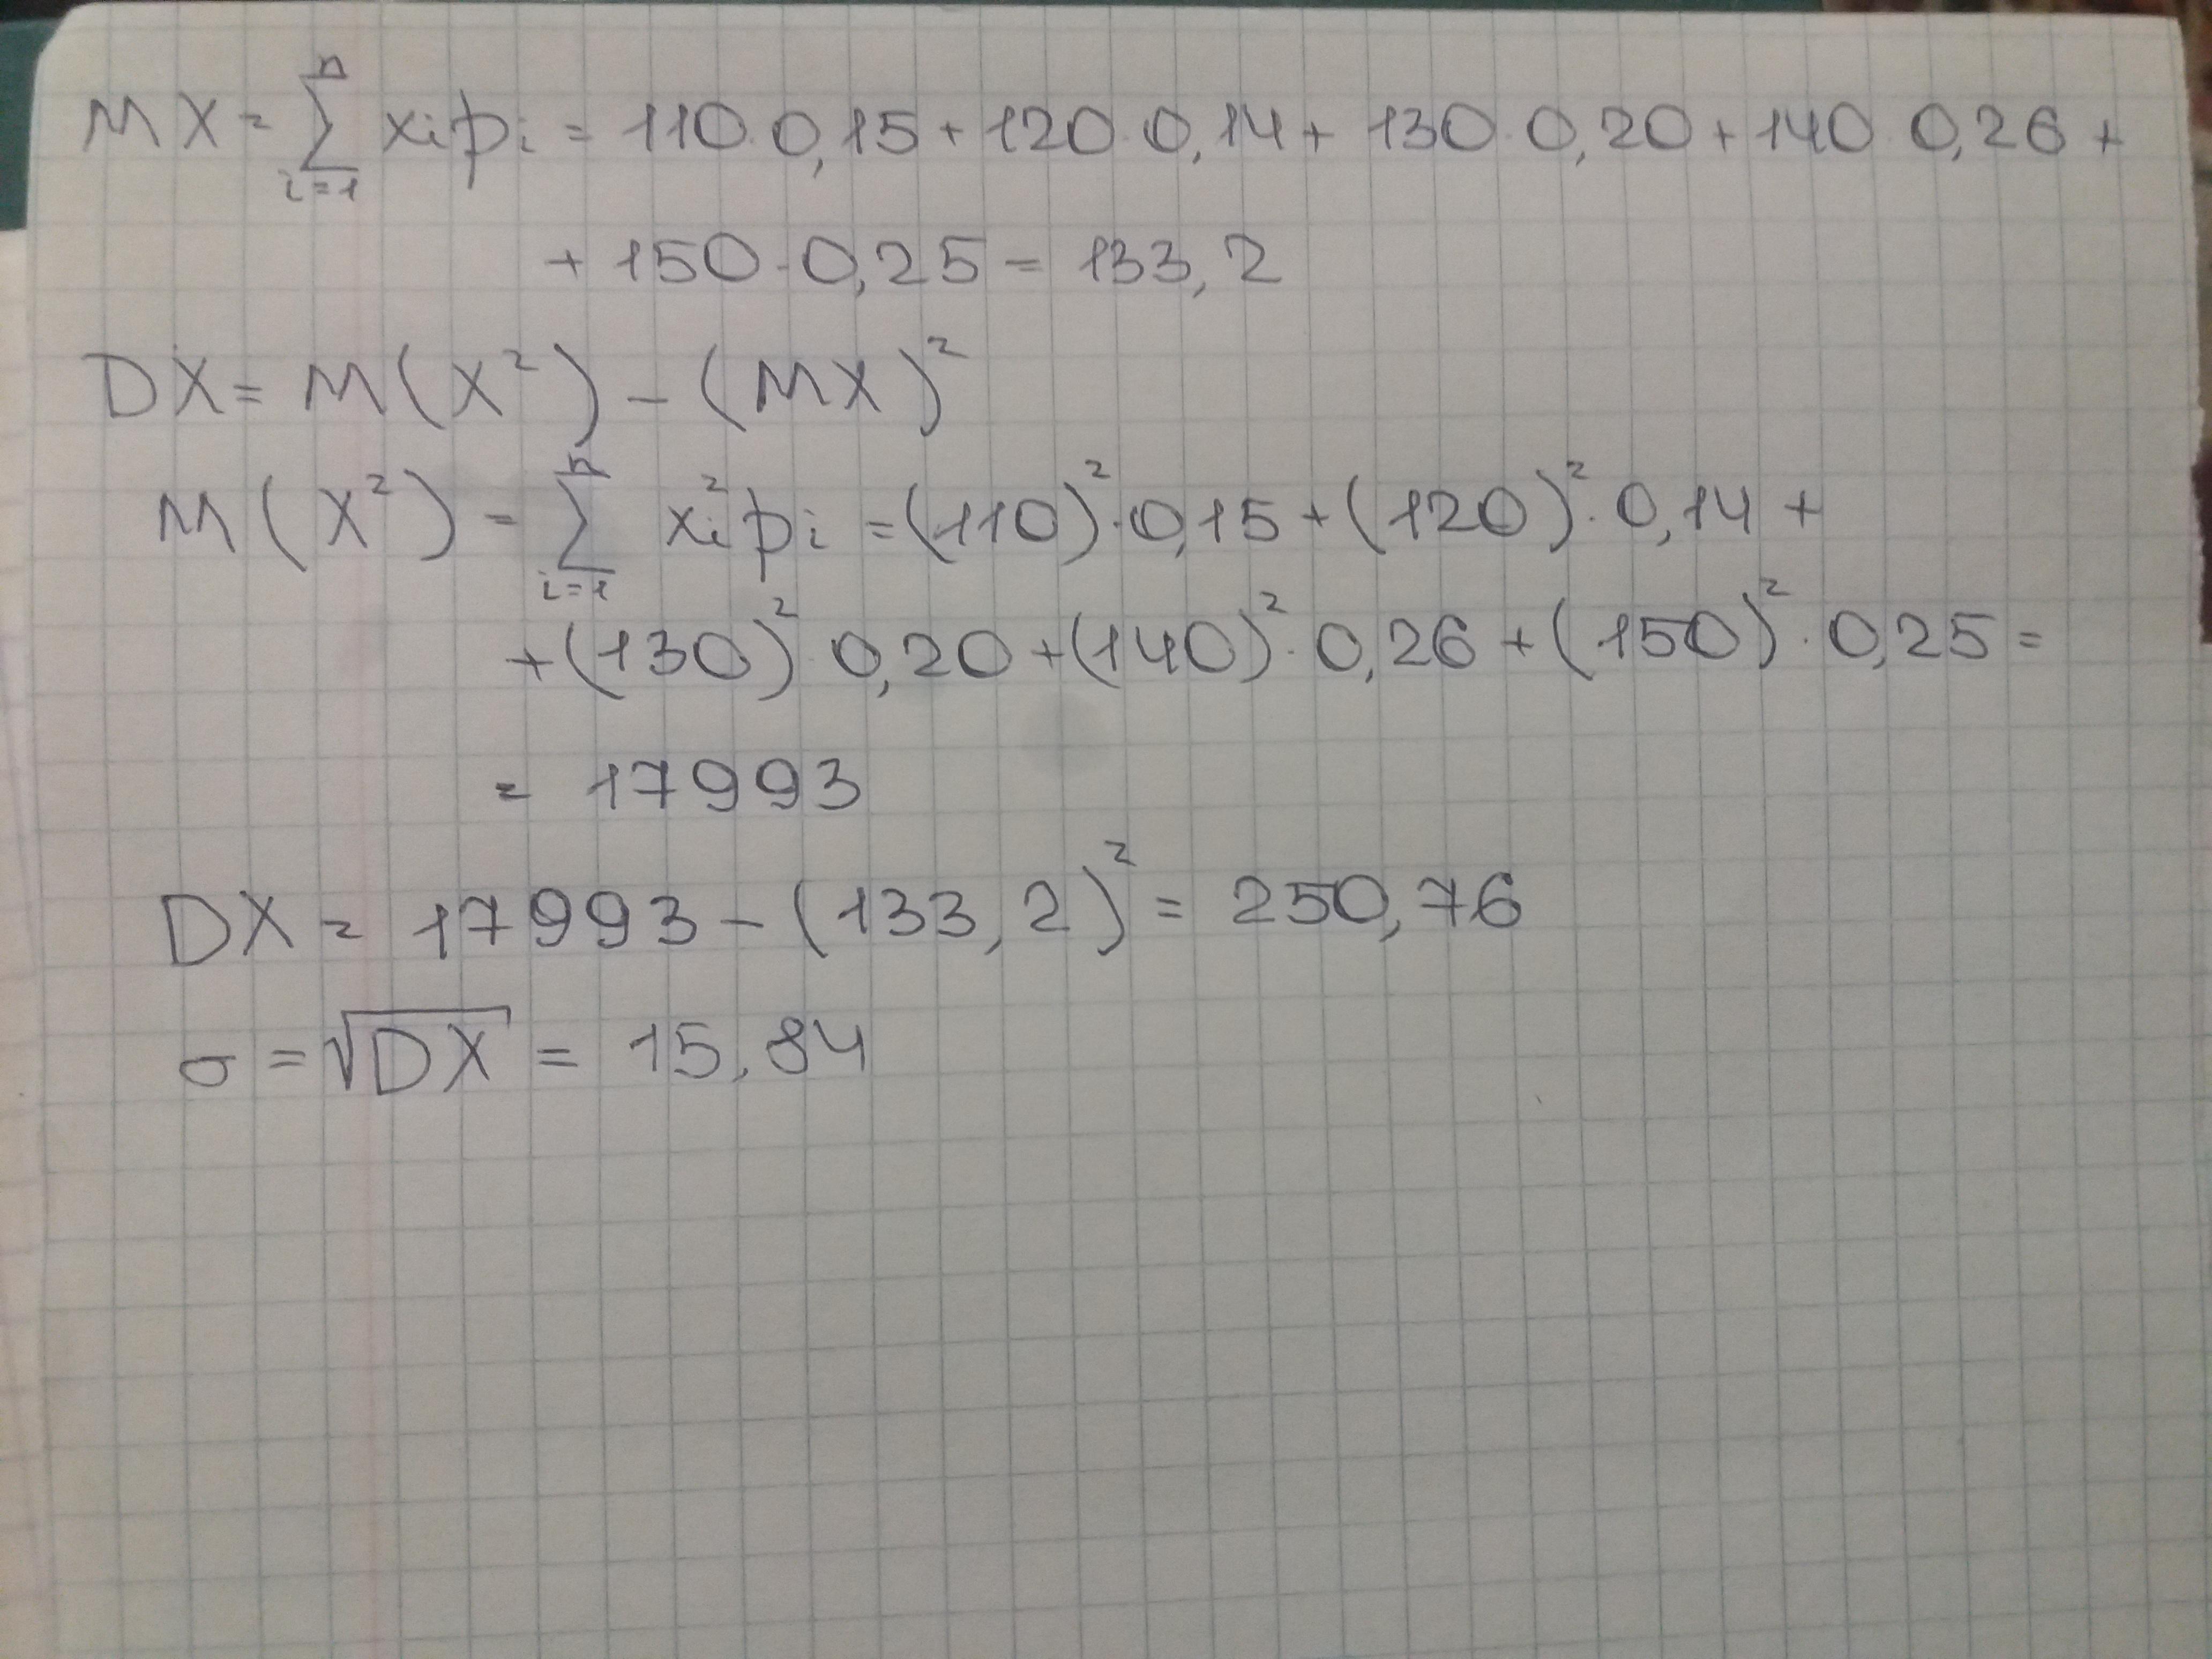 MX = ∑ⁿᵢ₌₁ xᵢpᵢ = 110·0,15 + 120·0,14 + 130·0,20 + 140·0,26 +
+ 150·0,25 = 133,2
DX = M(X²) - (MX)²
M(X²) = ∑ⁿᵢ₌₁ xᵢ²pᵢ = (110)²·0,15 + (120)²·0,14 +
+ (130)²·0,20 + (140)²·0,26 + (150)²·0,25 =
= 17993
DX = 17993 - (133,2)² = 250,76
σ = √DX = 15,84